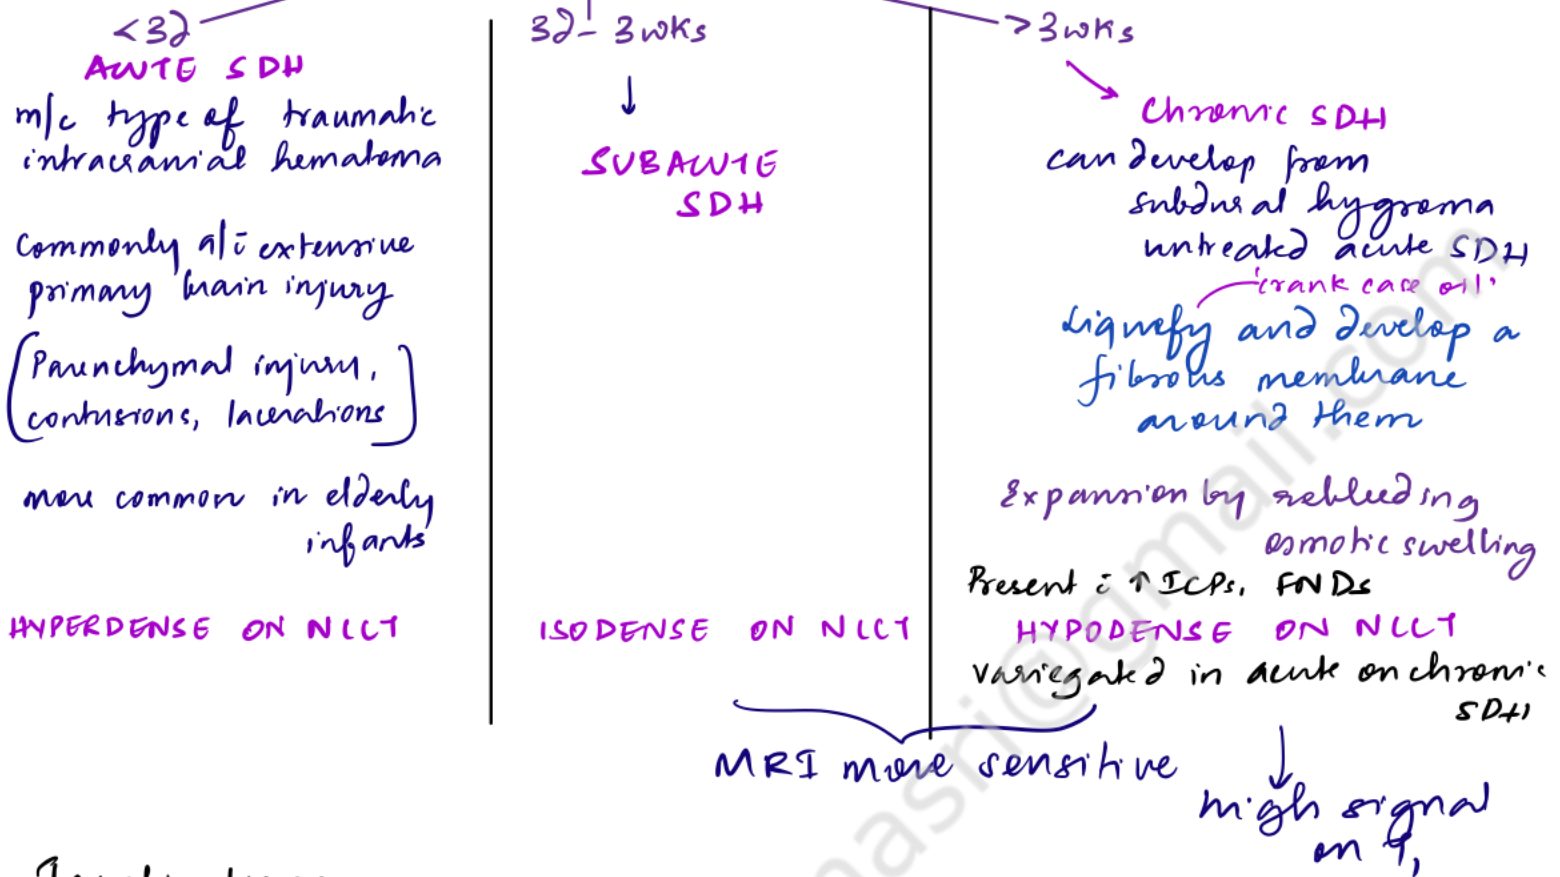 <3d
ACUTE SDH
m/c type of traumatic
intracranial hematoma
Commonly a/c̄ extensive
primary brain injury
(Parenchymal injury,
contusions, lacerations)
more common in elderly
infants
HYPERDENSE ON NCCT
3d - 3 wks
↓
SUBACUTE
SDH
ISODENSE ON NCCT
>3 wks
Chronic SDH
can develop from
subdural hygroma
untreated acute SDH
'crank case oil'
Liquefy and develop a
fibrous membrane
around them
Expansion by rebleeding
osmotic swelling
Present c̄ ↑ ICPs, FNDs
HYPODENSE ON NCCT
variegated in acute on chronic
SDH
MRI more sensitive
↓
high signal
on T1